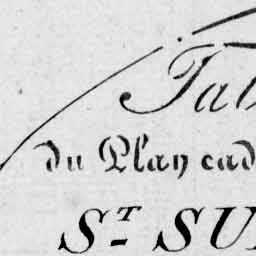 Tab
du Plan cad
ST SU